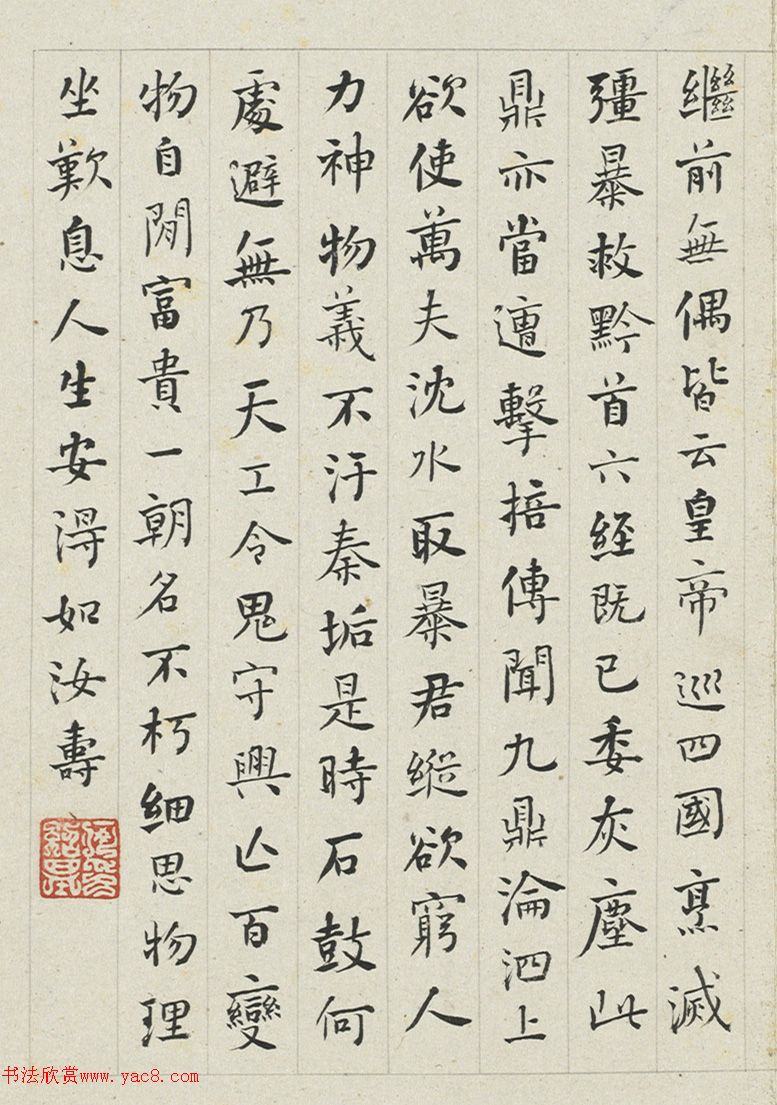 繼前無偶皆云皇帝巡四國烹滅
彊暴救黔首六經既已委灰塵此
鼎亦當遭擊掊傳聞九鼎淪泗上
欲使萬夫沈水取暴君縱欲窮人
力神物義不汙秦垢是時石鼓何
處避無乃天工令鬼守興亡百變
物自閒富貴一朝名不朽細思物理
坐歎息人生安得如汝壽
书法欣赏www.yac8.com